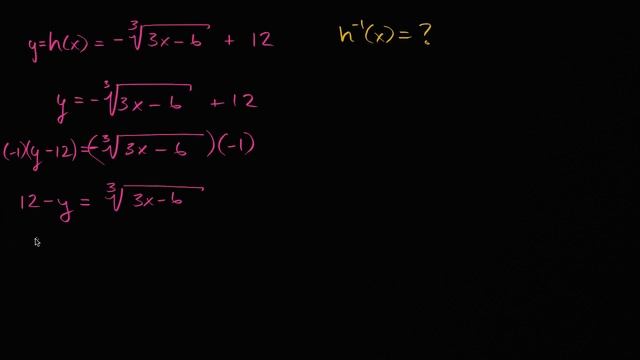 y=h(x) = -∛(3x-6) + 12
h⁻¹(x) = ?
y = -∛(3x-6) + 12
(-1)(y-12) = (-∛(3x-6))(-1)
12-y = ∛(3x-6)